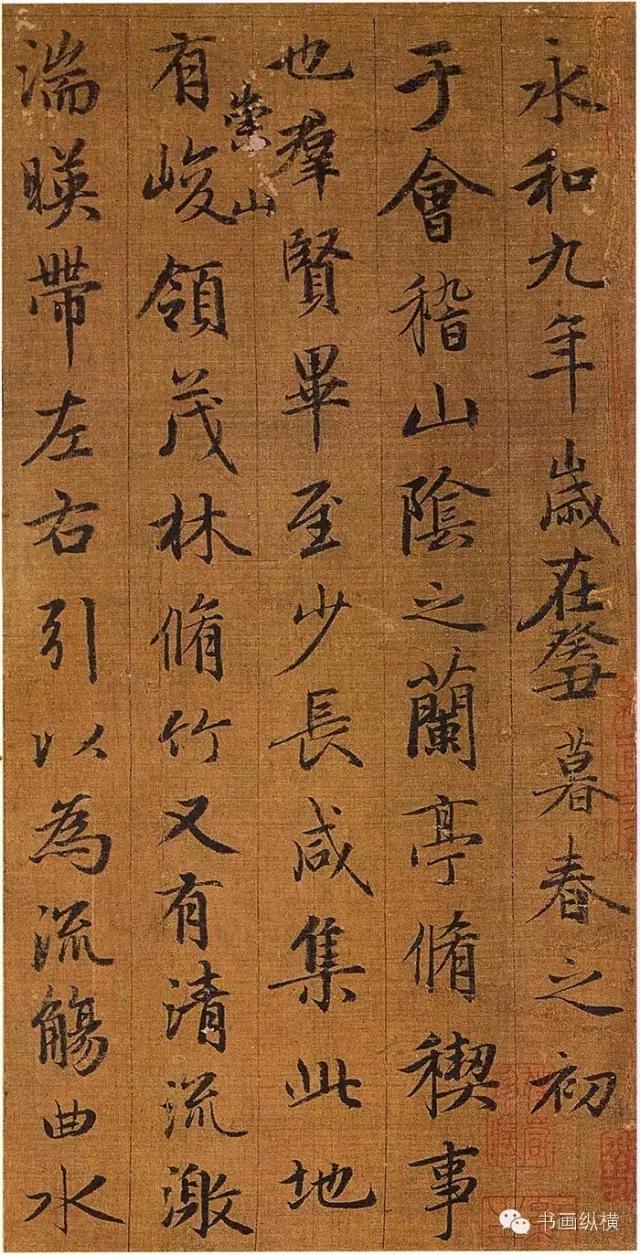 永和九年歲在癸丑暮春之初
于會稽山陰之蘭亭脩稧事
也羣賢畢至少長咸集此地
崇山
有峻領茂林脩竹又有清流激
湍暎帶左右引以為流觴曲水
书画纵横